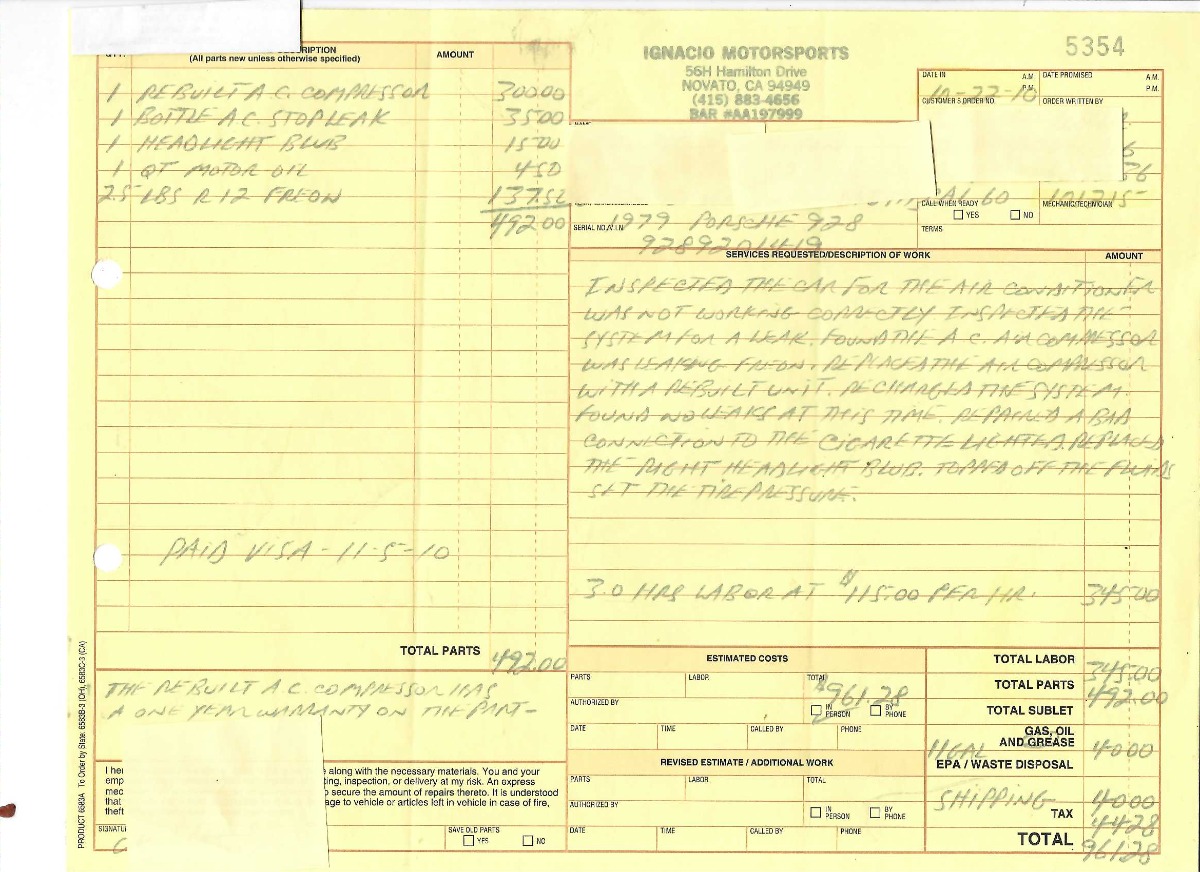 5354
IGNACIO MOTORSPORTS
56H Hamilton Drive
NOVATO, CA 94949
(415) 883-4656
BAR #AA197999
(All parts new unless otherwise specified)
AMOUNT
1 REBUILT A.C. COMPRESSOR 300.00
1 BOTTLE A.C. STOP LEAK 35.00
1 HEADLIGHT BLUB 15.00
1 QT MOTOR OIL 4.50
2.5 LBS R12 FREON 137.50
492.00
PAID VISA - 11-5-10
TOTAL PARTS 492.00
THE REBUILT A.C. COMPRESSOR HAS
A ONE YEAR WARRANTY ON THE PART-
I her
along with the necessary materials. You and your
emp
ting, inspection, or delivery at my risk. An express
mec
o secure the amount of repairs thereto. It is understood
that
age to vehicle or articles left in vehicle in case of fire,
theft
SAVE OLD PARTS
YES NO
PRODUCT 6583A To Order by State: 6583B-3 (OH), 6583C-3 (CA)
DATE IN A.M. P.M. DATE PROMISED A.M. P.M.
10-22-10
CUSTOMER'S ORDER NO. ORDER WRITTEN BY
CALL WHEN READY
YES NO
MECHANIC/TECHNICIAN
TERMS
1979 PORSCHE 928
SERIAL NO./V.I.N.
9289201419
SERVICES REQUESTED/DESCRIPTION OF WORK AMOUNT
INSPECTED THE CAR FOR THE AIR CONDITIONER
WAS NOT WORKING CORRECTLY INSPECTED THE
SYSTEM FOR A LEAK. FOUND THE A.C. AIR COMPRESSOR
WAS LEAKING FREON. REPLACED THE AIR COMPRESSOR
WITH A REBUILT UNIT. RECHARGED THE SYSTEM
FOUND NO LEAKS AT THIS TIME. REPAIRED A BAD
CONNECTION TO THE CIGARETTE LIGHTER. REPLACED
THE RIGHT HEADLIGHT BLUB. TOPPED OFF THE FLUIDS
SET THE TIRE PRESSURE.
3.0 HRS LABOR AT $115.00 PER HR. 345.00
ESTIMATED COSTS
PARTS LABOR TOTAL
$961.28
AUTHORIZED BY IN PERSON BY PHONE
DATE TIME CALLED BY PHONE
REVISED ESTIMATE / ADDITIONAL WORK
PARTS LABOR TOTAL
AUTHORIZED BY IN PERSON BY PHONE
DATE TIME CALLED BY PHONE
TOTAL LABOR 345.00
TOTAL PARTS 492.00
TOTAL SUBLET
GAS, OIL AND GREASE 40.00
11 GAL
EPA / WASTE DISPOSAL
SHIPPING 40.00
TAX 44.28
TOTAL 961.28